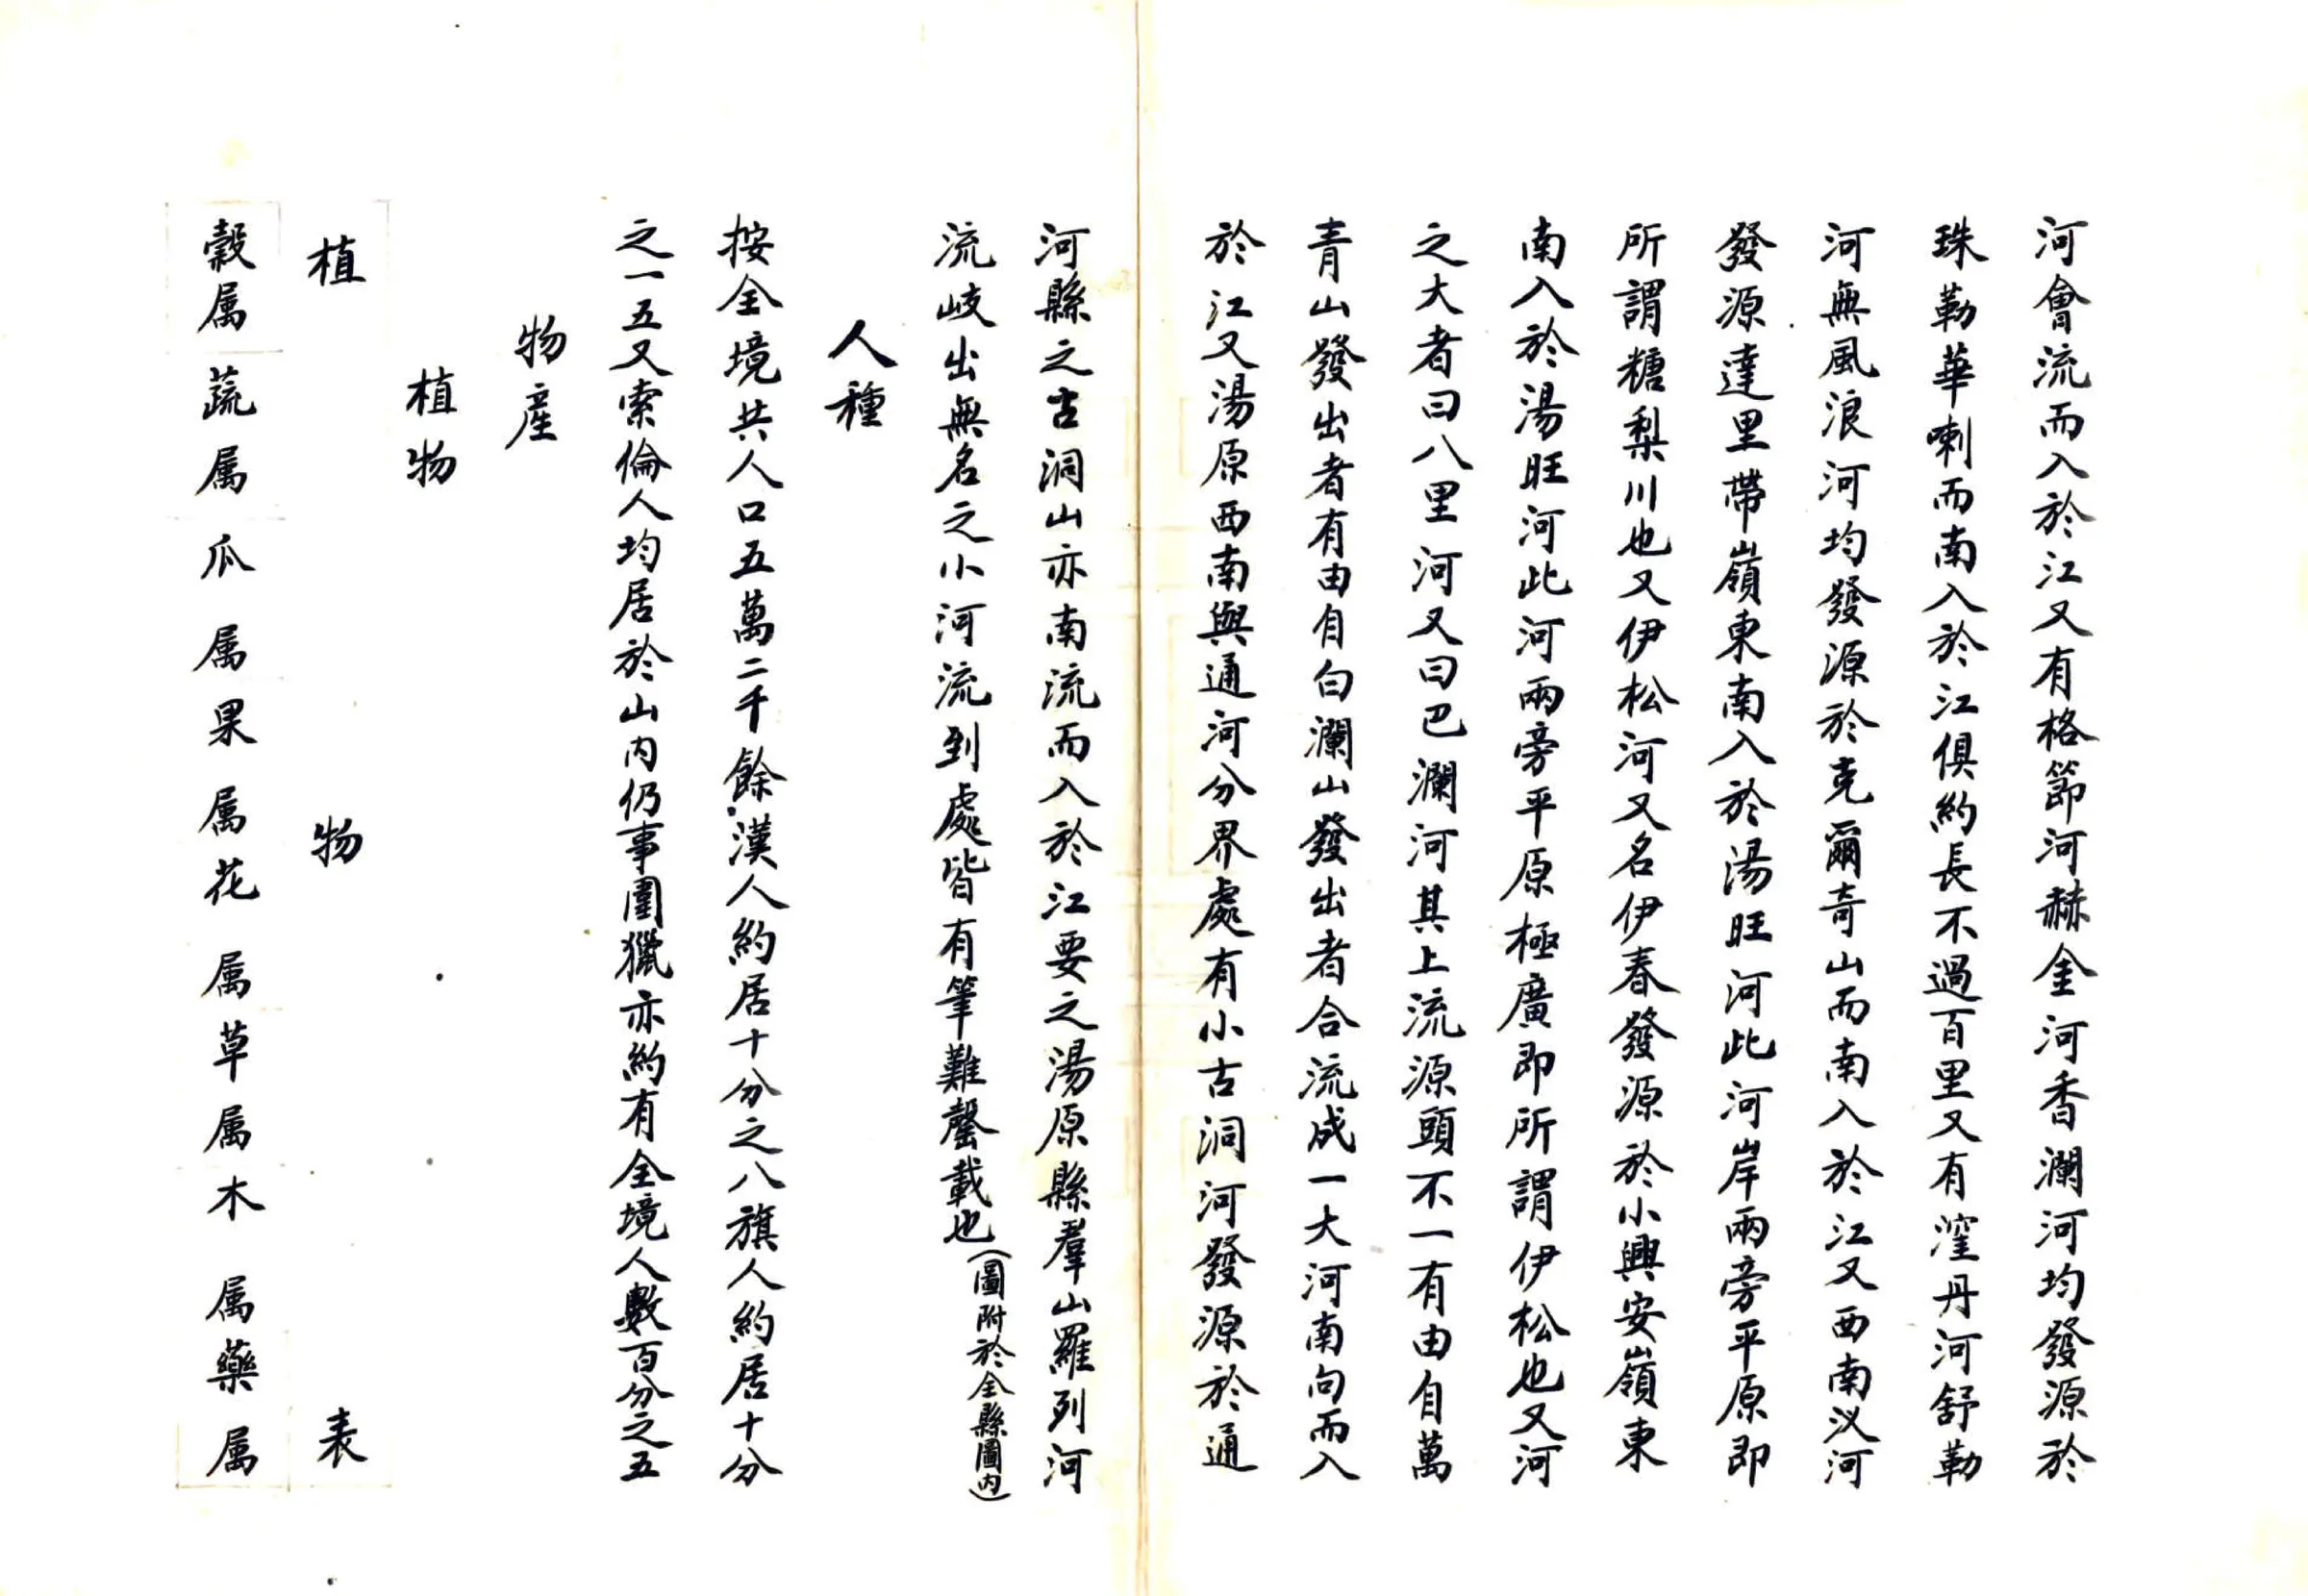 河會流而入於江又有格節河赫金河香瀾河均發源於
珠勒華喇而南入於江俱約長不過百里又有窪丹河舒勒
河無風浪河均發源於克爾奇山而南入於江又西南汊河
發源達里帶嶺東南入於湯旺河此河岸兩旁平原即
所謂糖梨川也又伊松河又名伊春發源於小興安嶺東
南入於湯旺河此河兩旁平原極廣即所謂伊松也又河
之大者曰八里河又曰巴瀾河其上流源頭不一有由自萬
青山發出者有由自白瀾山發出者合流成一大河南向而入
於江又湯原西南與通河分界處有小古洞河發源於通
河縣之古洞山亦南流而入於江要之湯原縣羣山羅列河
流岐出無名之小河流到處皆有筆難罄載也(圖附於全縣圖內)
人種
按全境共人口五萬二千餘漢人約居十分之八旗人約居十分
之一五又索倫人均居於山內仍事圍獵亦約有全境人數百分之五
物產
植物
植物表
穀属 蔬属 瓜属 果属 花属 草属 木属 藥属